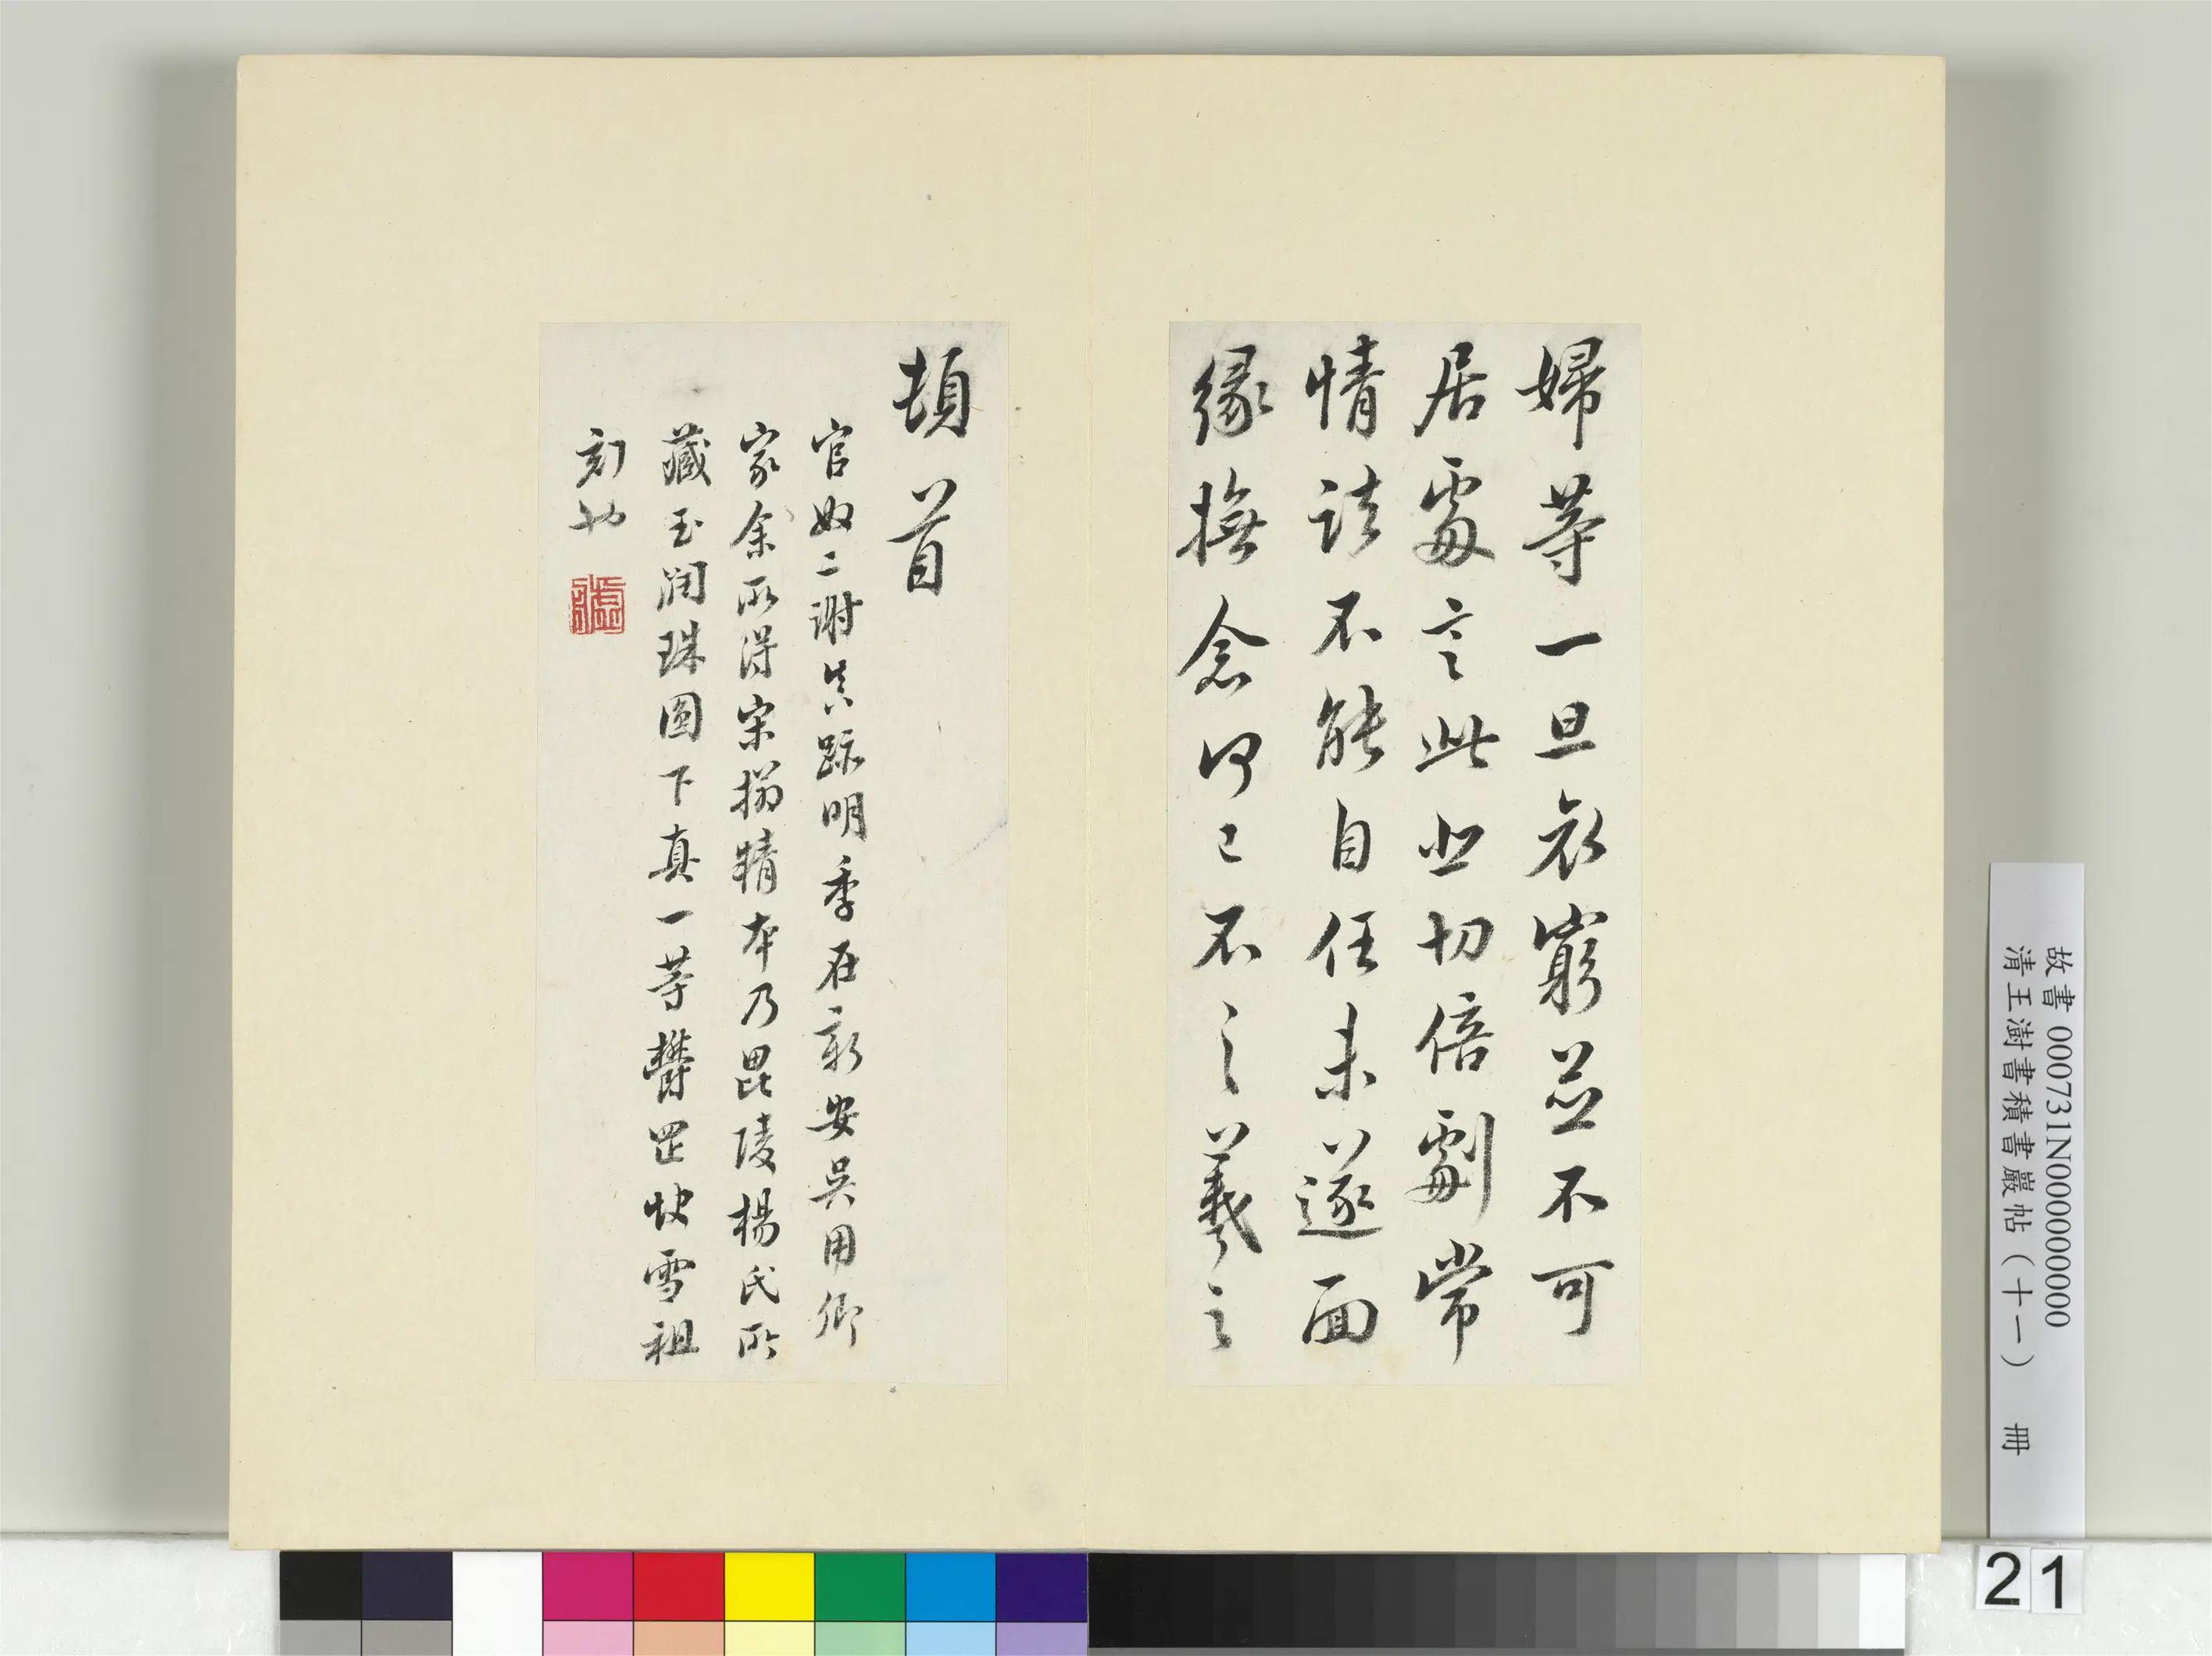 婦等一旦哀窮並不可
居處言此悲切倍劇常
情諸不能自任未遂面
緣撫念何已不一一羲之
頓首
官奴二謝真跡明季在新安吳用卿
家余所得宋搨精本乃毘陵楊氏所
藏玉潤珠圓下真一等鬱岡快雪祖
刻也
故書 000731N000000000
清王澍書積書巖帖（十一） 冊
21